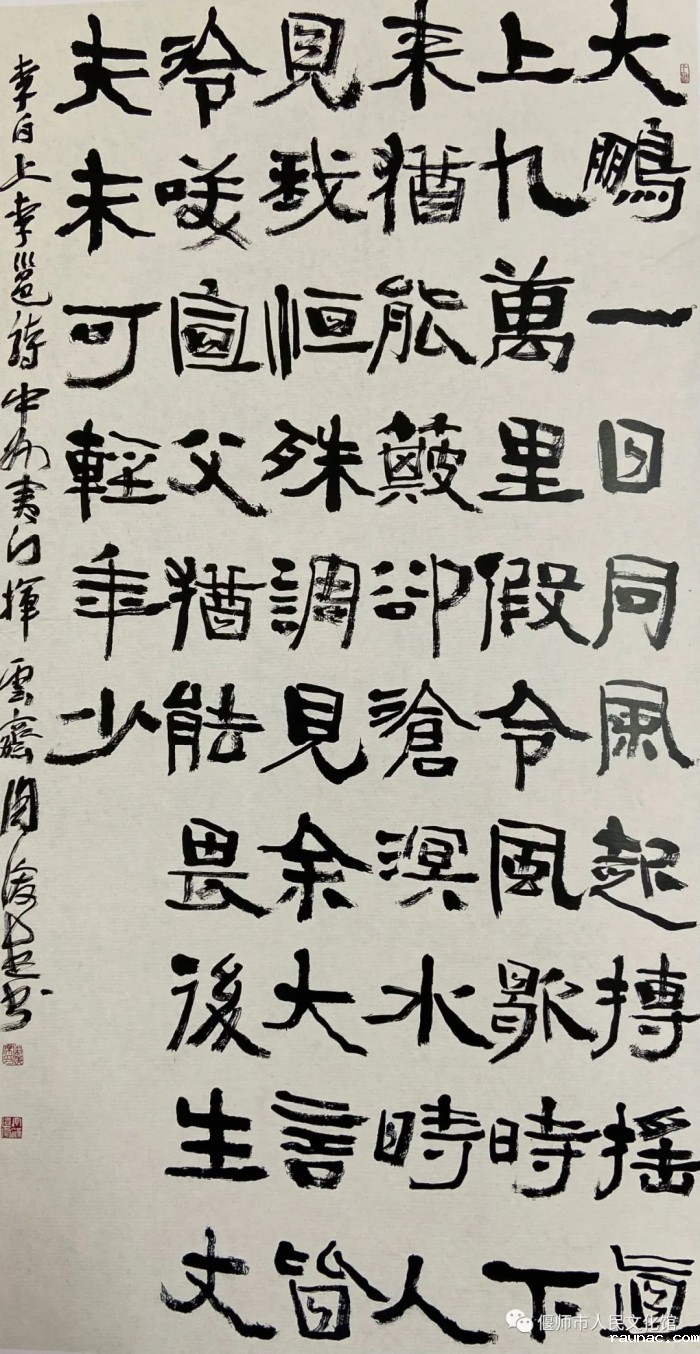 大鵬一日同風起搏搖直
上九萬里假令風歇時下
来猶能簸卻滄溟水時人
見我恒殊調見余大言皆
冷咲宣父猶能畏後生丈
夫未可輕年少
李白上李邕詩中州夷门揮雲齋周俊杰书
偃师市人民文化馆
raunac.com